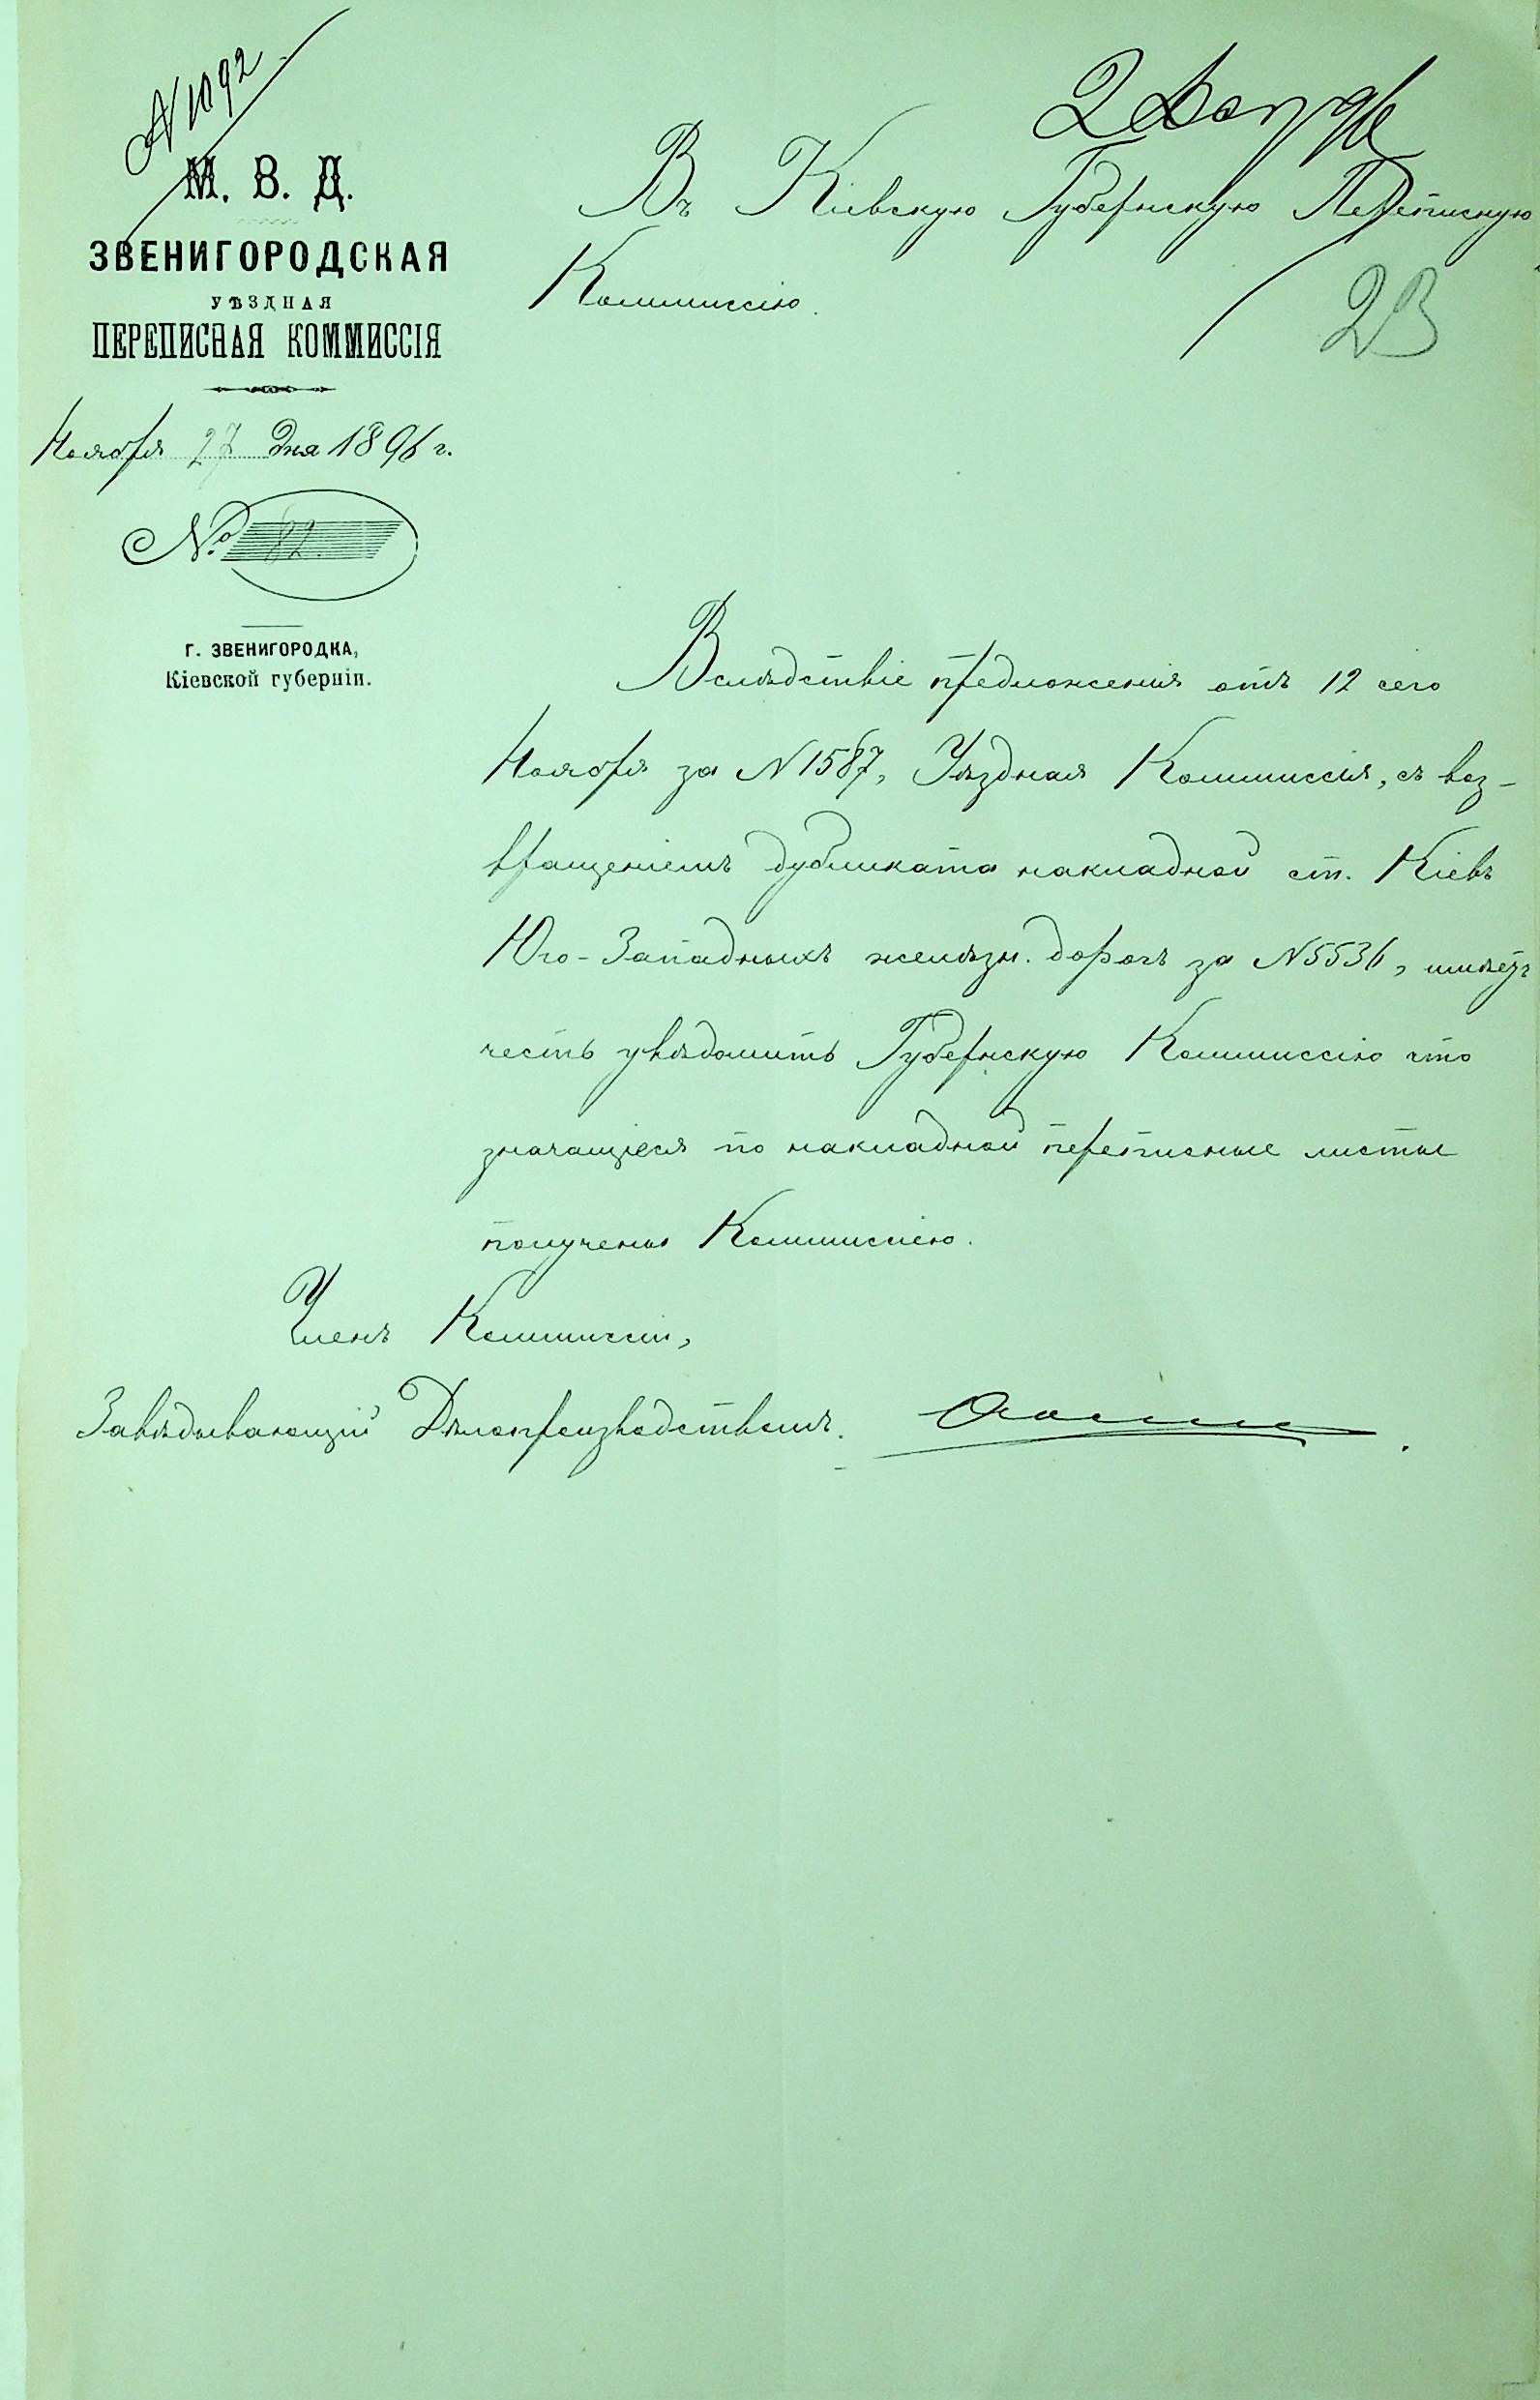 N 1092
М. В. Д.
ЗВЕНИГОРОДСКАЯ
УѢЗДНАЯ
ПЕРЕПИСНАЯ КОММИССІЯ
Ноября 27 дня 1896 г.
№ 82.
Г. ЗВЕНИГОРОДКА,
Кіевской губерніи.
Въ Кіевскую Губернскую Переписную
Коммиссію.
23
Вслѣдствіе предложенія отъ 12 сего
Ноября за N 1587, Уѣздная Коммиссія, съ воз-
вращеніемъ дубликата накладной ст. Кіевъ
Юго-Западныхъ желѣзн. дорогъ за N 5536, имѣетъ
честь увѣдомить Губернскую Коммиссію что
значащіеся по накладной переписные листы
получены Коммиссіею.
Членъ Коммиссіи,
Завѣдывающій Дѣлопроизводствомъ.